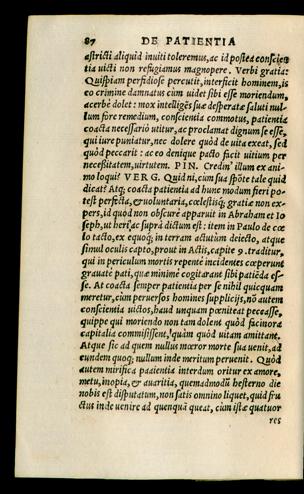 87 DE PATIENTIA
astricti aliquid inviti toleremus, ac id postea conscien
tia victi non refugiamus magnopere. Verbi gratia:
Quispiam perfidiose percutit, interficit hominem, is
eo crimine damnatus cum uidet sibi esse moriendum,
acerbè dolet: mox intelligēs suæ desperatæ saluti nul-
lum fore remedium, conscientia commotus, patientia
coacta necessariò utitur, ac proclamat dignum se esse,
qui iure puniatur, nec dolere quòd de uita exeat, sed
quòd peccarit: ac eo denique pacto facit uitium per
necessitatem, uirtutem. PIN. Credin' illum ex ani-
mo loqui? VERG. Quid ni, cùm sua spōte tale quid
dicat? Atq; coacta patientia ad hunc modum fieri po-
test perfecta, & uoluntaria, cœlestisq; gratiæ non ex-
pers, id quod non obscurè apparuit in Abraham et Io
seph, ut heri ac suprà dictum est: item in Paulo de cœ
lo tacto, ex equoq; in terram actutùm deiecto, atque
simul oculis capto, prout in Actis, capite 9. traditur,
qui in periculum mortis repente incidentes cœperunt
grauatè pati, quæ minimè cogitarant sibi patiēda es-
se. At coacta semper patientia per se nihil quicquam
meretur, cùm peruersos homines supplicijs, nō autem
conscientia uictos, haud unquam pœniteat peccasse,
quippe qui moriendo non tam dolent quòd facinora
capitalia commisissent, quàm quòd uitam amittant.
Atque sic ad quem nullus mœror morte sua uenit, ad
eundem quoq; nullum inde meritum peruenit. Quòd
autem mirifica paaientia interdum oritur ex amore,
metu, inopia, & auaritia, quemadmodū hesterno die
nobis est disputatum, non satis omnino liquet, quid fru
ctus inde uenire ad quenquā queat, cùm istæ quatuor
res